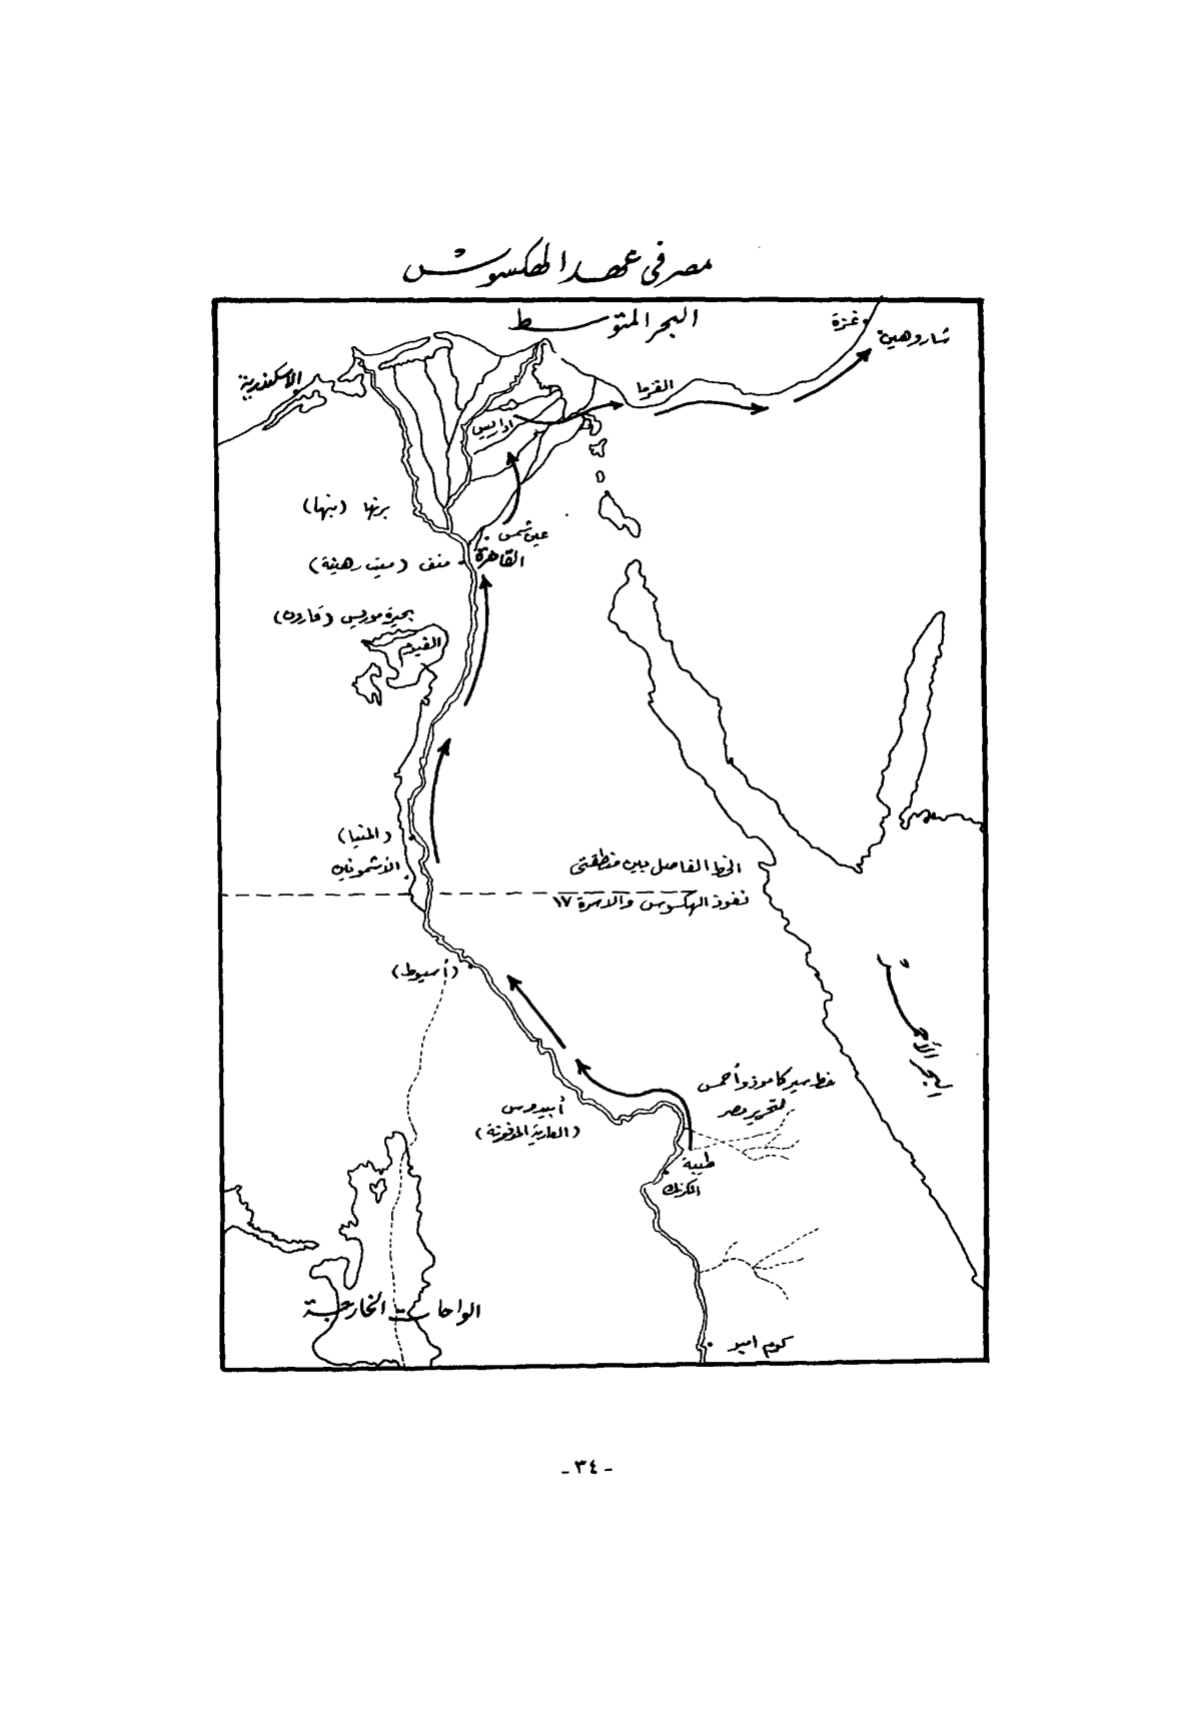 مصر فى عهد الهكسوس
البحر المتوسط
غزة
شاروهين
الاسكندرية
الفرما
اواريس
برنها (بنها)
عين شمس
القاهرة
منف (ميت رهينة)
بحيرة موريس (قارون)
الفيوم
(المنيا)
الأشمونين
الخط الفاصل بين منطقتى
نفوذ الهكسوس والاسرة ١٧
(أسيوط)
البحر الأحمر
خط سير كاموز وأحمس
لتحرير مصر
أبيدوس
(العرابة المدفونة)
طيبة
الكرنك
الواحات الخارجة
كوم امبو
- ٣٤ -